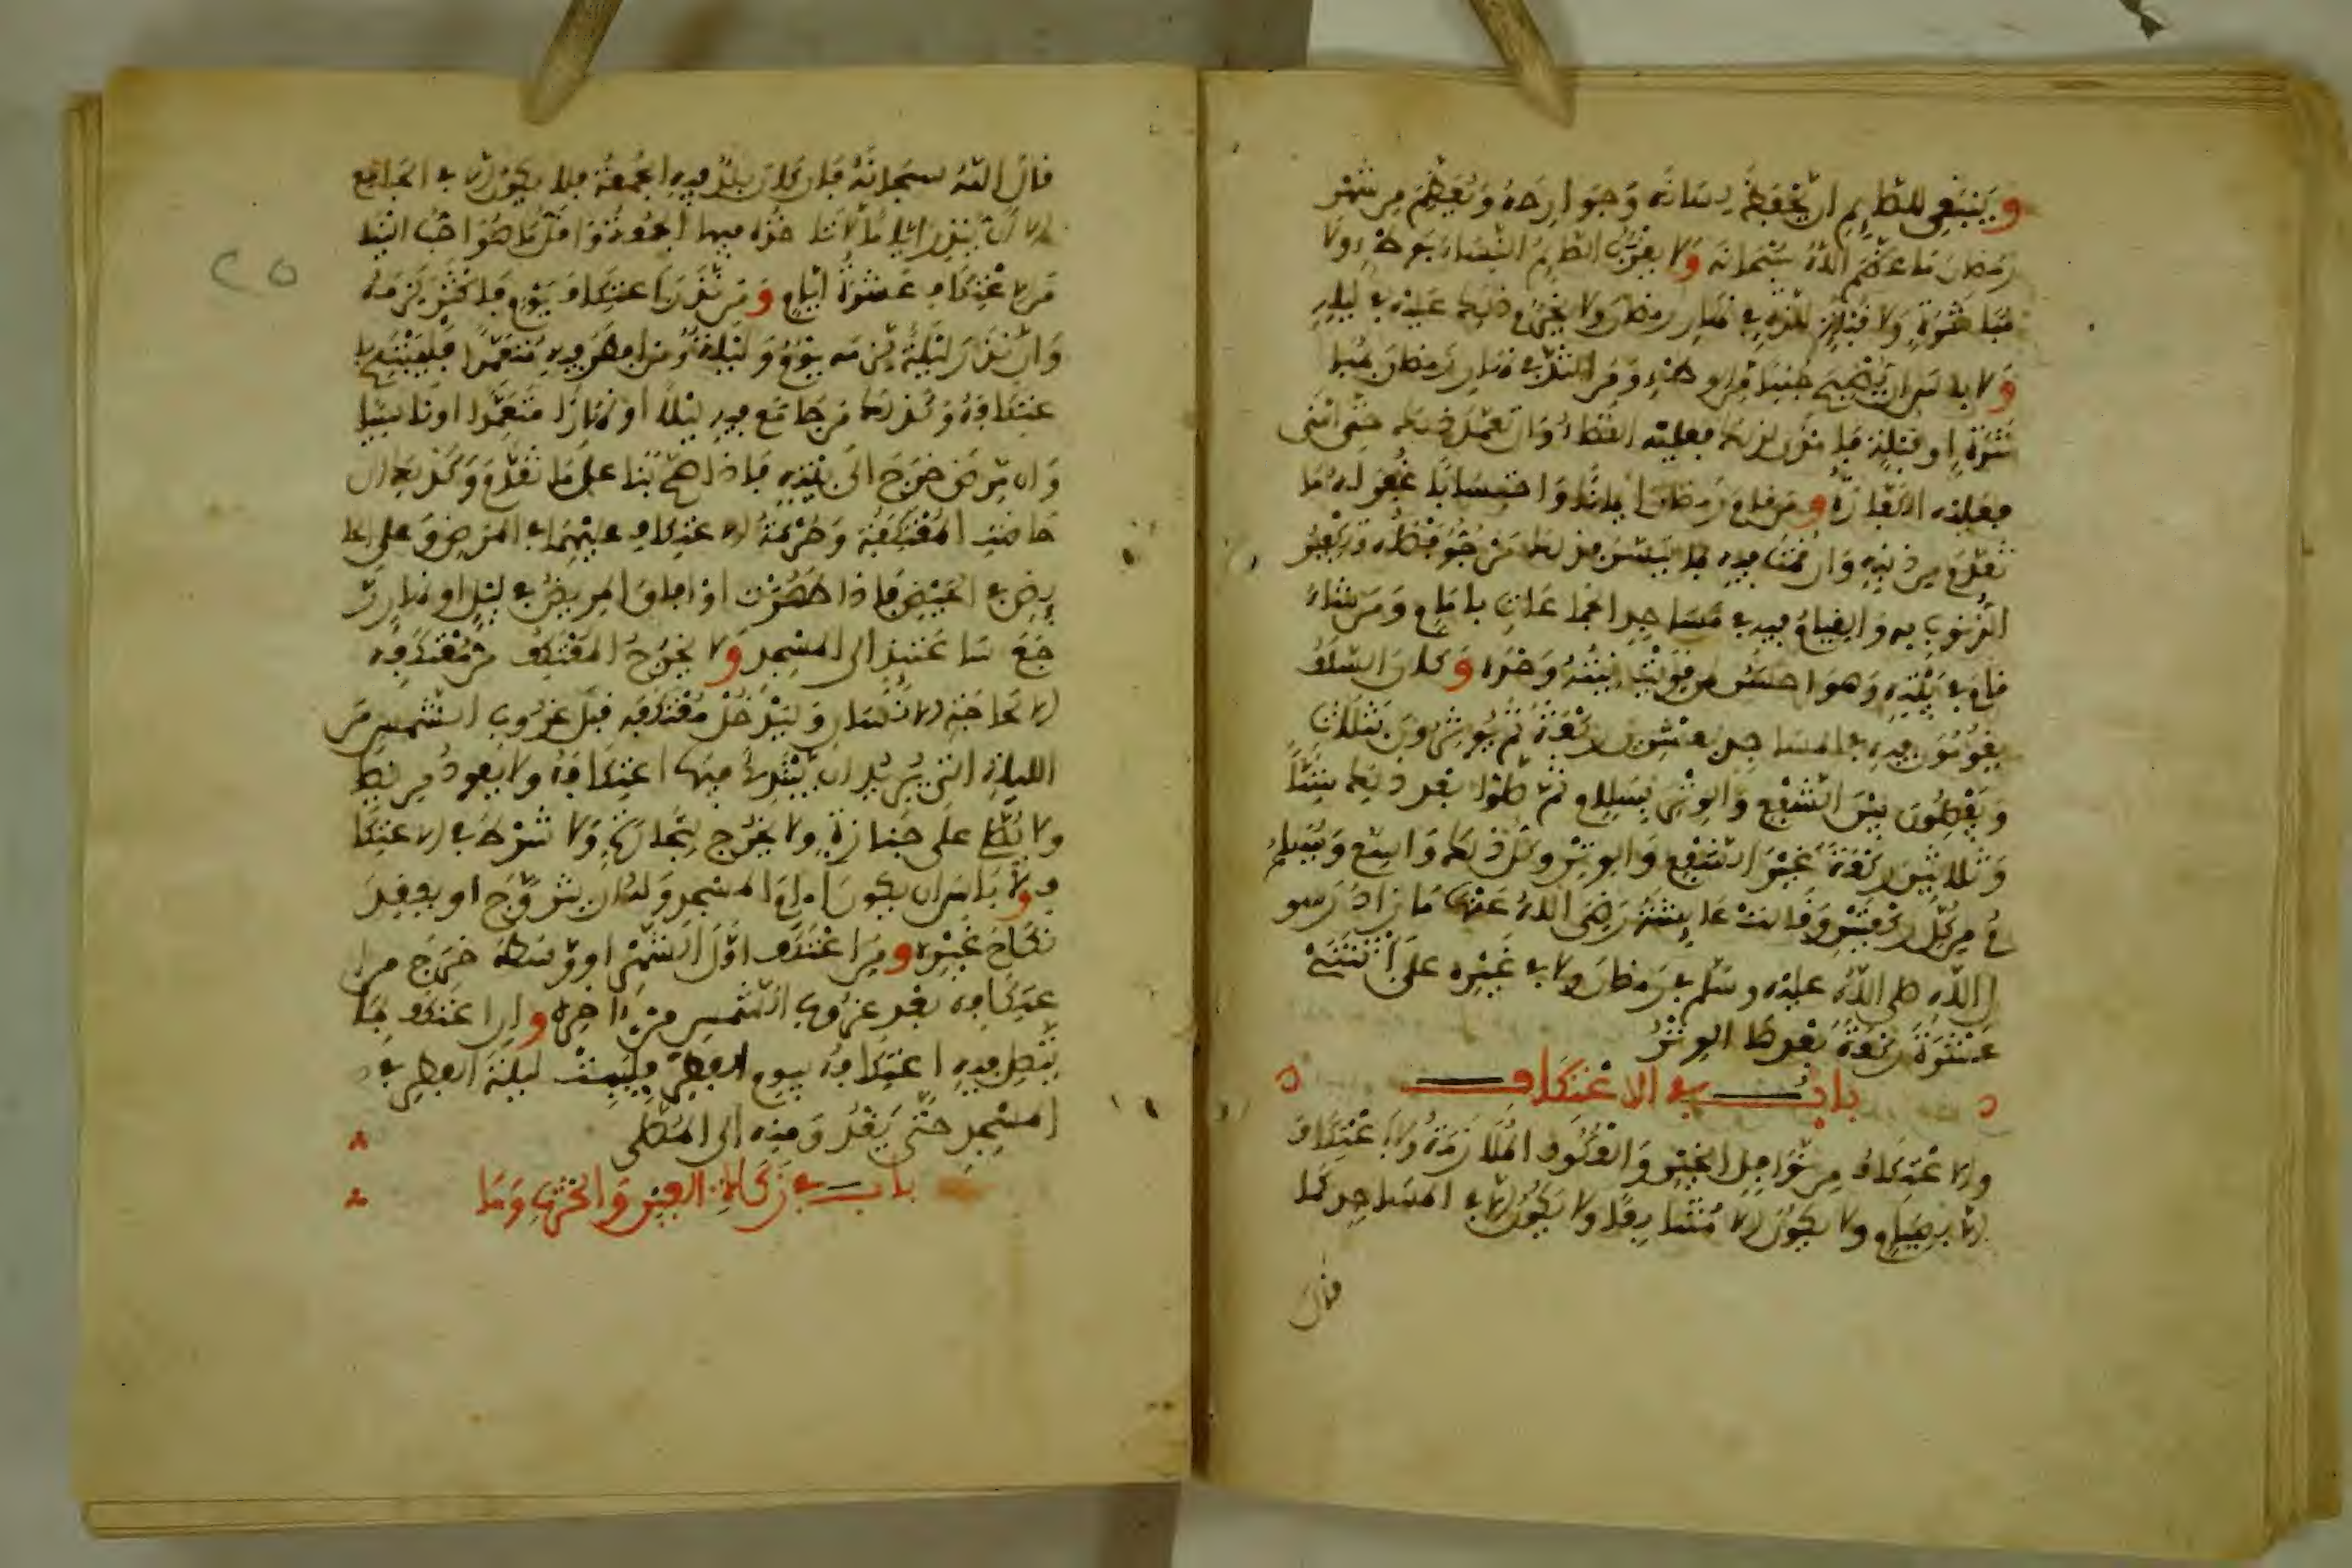 وينبغي للصايم ان يحفظ لسانه وجوارحه ويعظم من شهر
رمضان ما عظم الله سبحانه ولا يقرب الصايم النساء بوطء ولا
مباشرة ولا قبلة للذة في نهار رمضان ولا يحرم ذلك عليه في ليله
ولا باس ان يصبح جنبا من الوطء ومن التذ في نهار رمضان بمبا
شرة او قبلة فامذى لذلك فعليه القضاء وان تعمد ذلك حتى امنى
فعليه الكفارة ومن قام رمضان ايمانا واحتسابا غفر له ما
تقدم من ذنبه وان قمت فيه بما تيسر فذلك مرجو فضله وتكفير
الذنوب به والقيام فيه في مساجد الجماعات بامام ومن شاء
قام في بيته وهو احسن لمن قويت نيته وحده وكان السلف
يقومون فيه في المساجد بعشرين ركعة ثم يوترون بثلاث
ويفصلون بين الشفع والوتر بسلام ثم صلوا بعد ذلك ستا
وثلاثين ركعة غير الشفع والوتر وكل ذلك واسع ويسلم
في من كل ركعتين وقالت عايشة رضي الله عنها ما زاد رسو
ل الله صلى الله عليه وسلم في رمضان ولا في غيره على اثنتي
عشرة ركعة بعدها الوتر
باب في الاعتكاف
والاعتكاف من نوافل الخير والعكوف الملازمة ولا اعتكاف
الا بصيام ولا يكون الا متتابعا ولا يكون الا في المساجد كما
قال
قال الله سبحانه فان كان بلد فيه الجمعة فلا يكون الا في الجامع
الا ان ينذر اياما لا تاخذه فيها الجمعة واقل ما هو احب الينا
من الاعتكاف عشرة ايام ومن نذر اعتكاف يوم فاكثر لزمه
وان نذر ليلة لزمه يوم وليلة ومن افطر فيه متعمدا فليبتدئ ا
عتكافه وكذلك من جامع فيه ليلا او نهارا متعمدا او ناسيا
وان مرض خرج الى بيته فاذا صح بنا على ما تقدم وكذلك ان
حاضت المعتكفة وحرمة الاعتكاف عليهما في المرض وعلى الحا
يض في الحيض فاذا طهرت او افاق المريض في ليل او نهار ر
جع ساعتئذ الى المسجد ولا يخرج المعتكف من معتكفه
الا لحاجة الانسان وليدخل معتكفه قبل غروب الشمس من
الليلة التي يريد ان يبتدئ فيها اعتكافه ولا يعود مريضا
ولا يصلي على جنازة ولا يخرج لتجارة ولا شرط في الاعتكا
ف ولا باس ان يكون امام المسجد وله ان يتزوج او يعقد
نكاح غيره ومن اعتكف اول الشهر او وسطه خرج من ا
عتكافه بعد غروب الشمس من اخره وان اعتكف بما
يتصل فيه اعتكافه بيوم الفطر فليبت ليلة الفطر في
المسجد حتى يغدو منه الى المصلى
باب في زكاة العين والحرث وما
٢٥